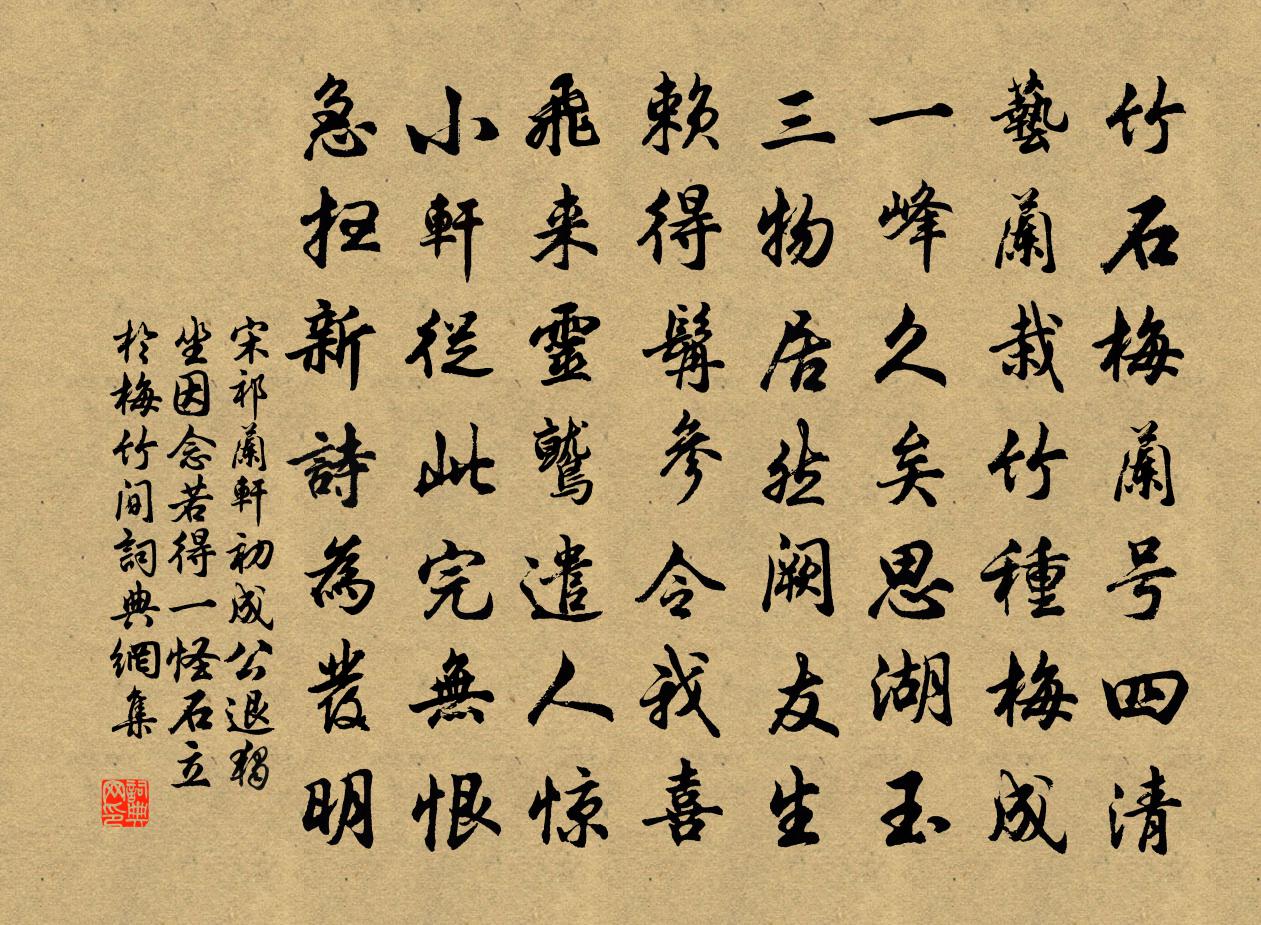 竹石梅蘭号四清
藝蘭栽竹種梅成
一峰久矣思湖玉
三物居然闕友生
賴得髯參令我喜
飛来靈鷲遣人惊
小軒從此完無恨
急掃新詩為發明
宋祁蘭軒初成公退獨
坐因念若得一怪石立
於梅竹间詞典網集
詞典网印